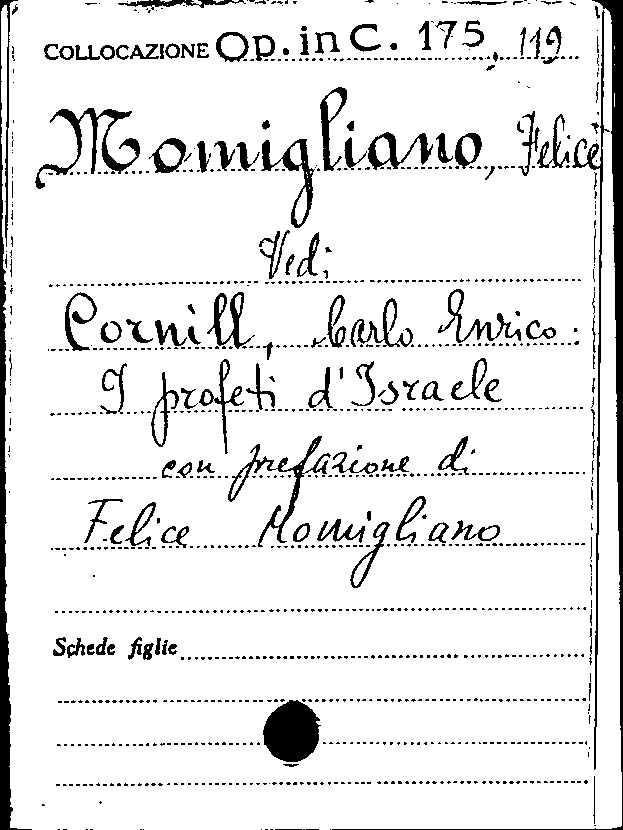 COLLOCAZIONE Op. in C. 175, 119
Momigliano, Felice
Vedi
Cornill, Carlo Enrico:
I profeti d'Israele
con prefazione di
Felice Momigliano
Schede figlie